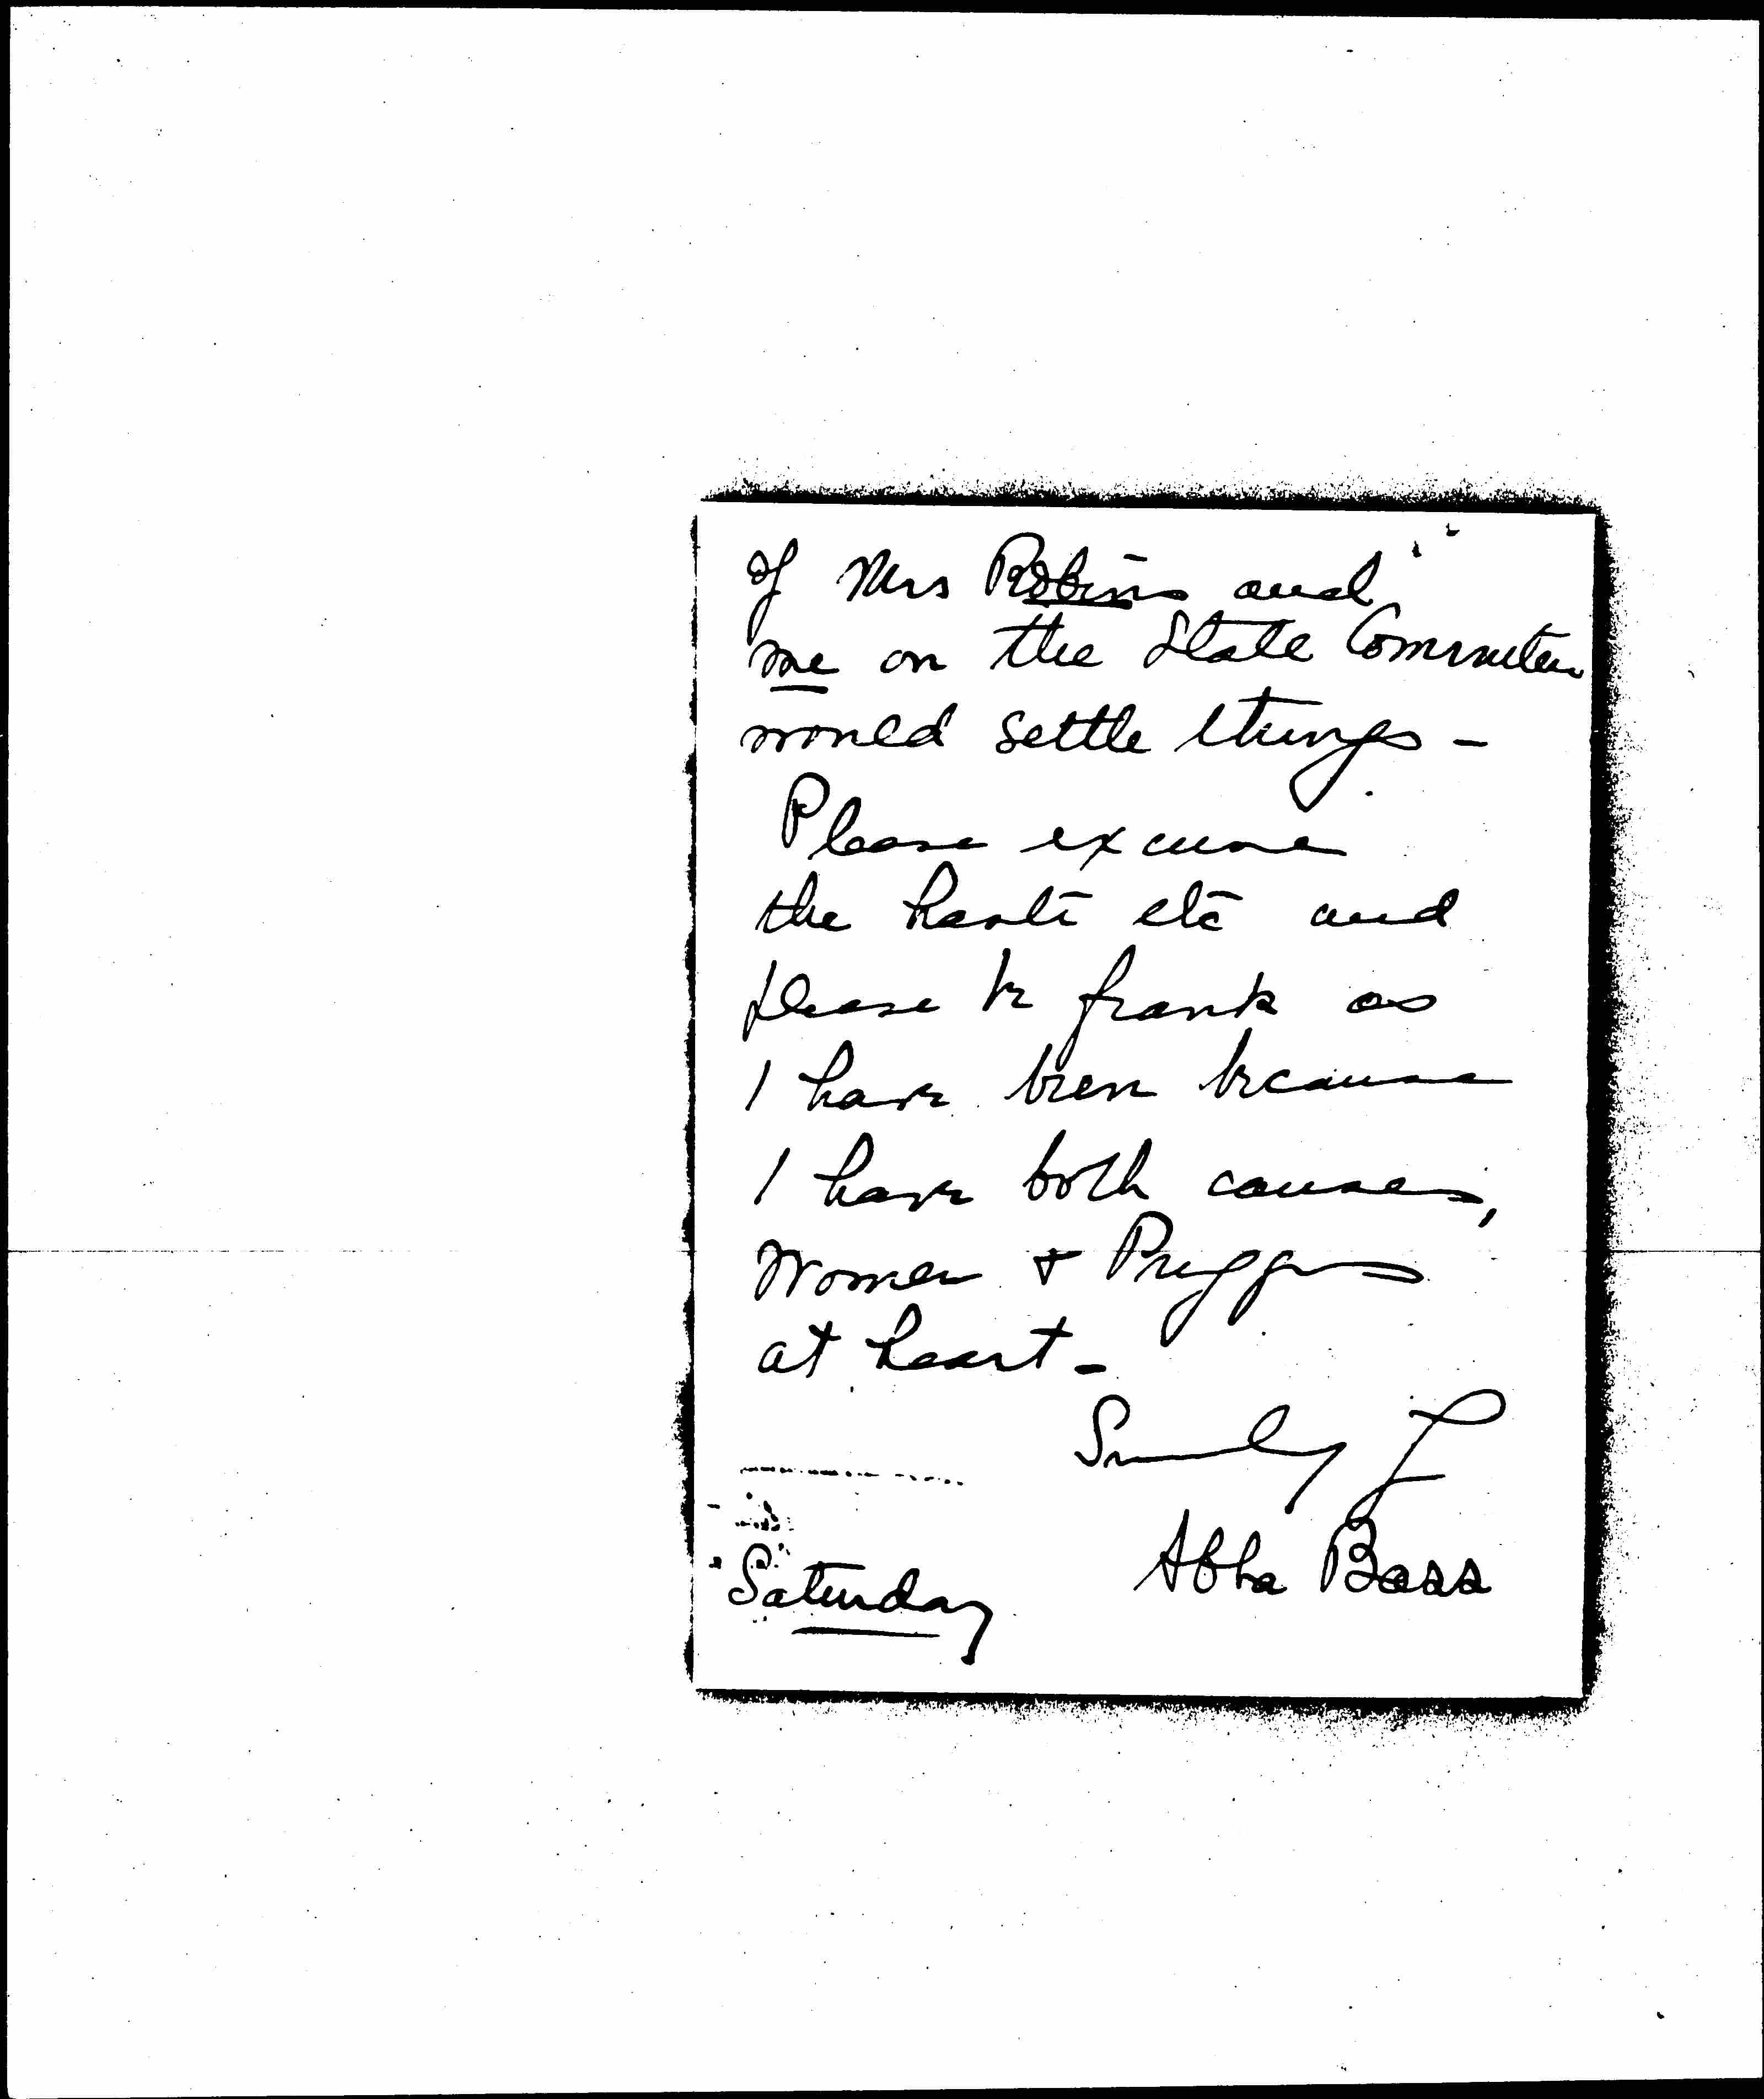 of Mrs Robins and
me on the State Committee
would settle things -
Please excuse
the haste etc and
please be frank as
I have been because
I have both causes,
Women &
at heart -
Sincerely
Abba Bass
Saturday